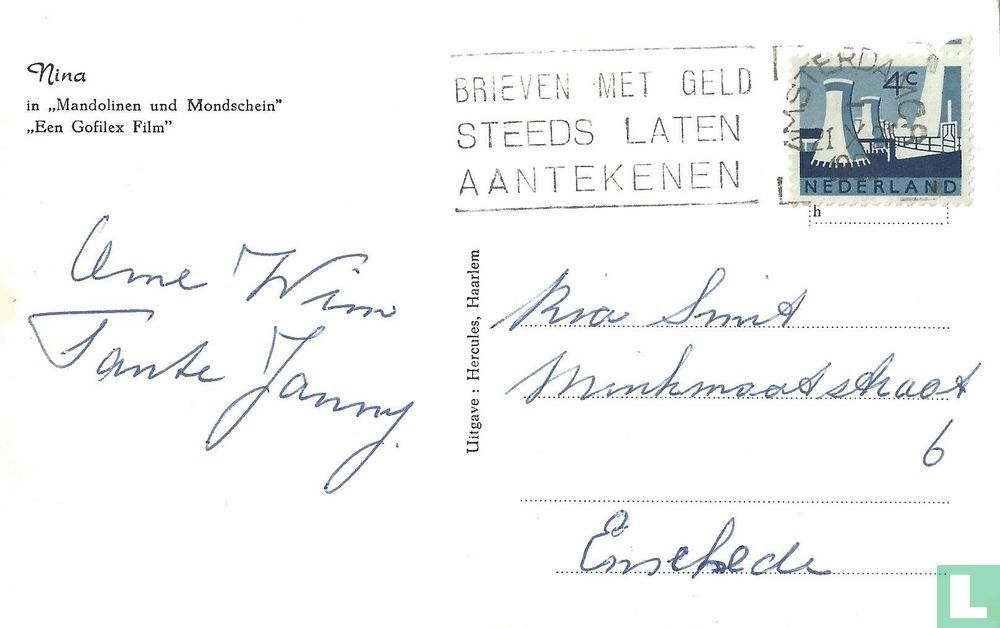 Nina
in „Mandolinen und Mondschein”
„Een Gofilex Film”
BRIEVEN MET GELD
STEEDS LATEN
AANTEKENEN
AMSTERDAM
4c
NEDERLAND
h
Ome Wim
Tante Janny
Uitgave : Hercules, Haarlem
Ria Smit
Minkmaatstraat
6
Enschede
L